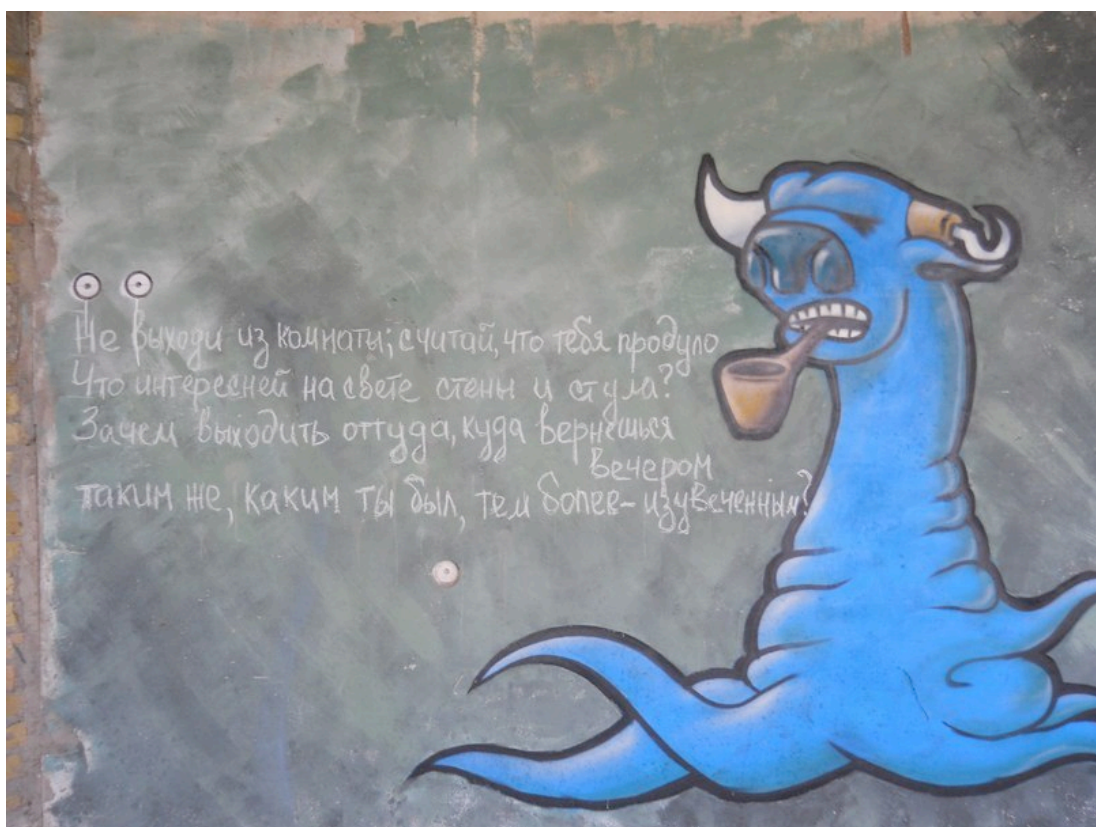 Не выходи из комнаты; считай, что тебя продуло
Что интересней на свете стены и стула?
Зачем выходить оттуда, куда вернешься
вечером
таким же, каким ты был, тем более- изувеченным?